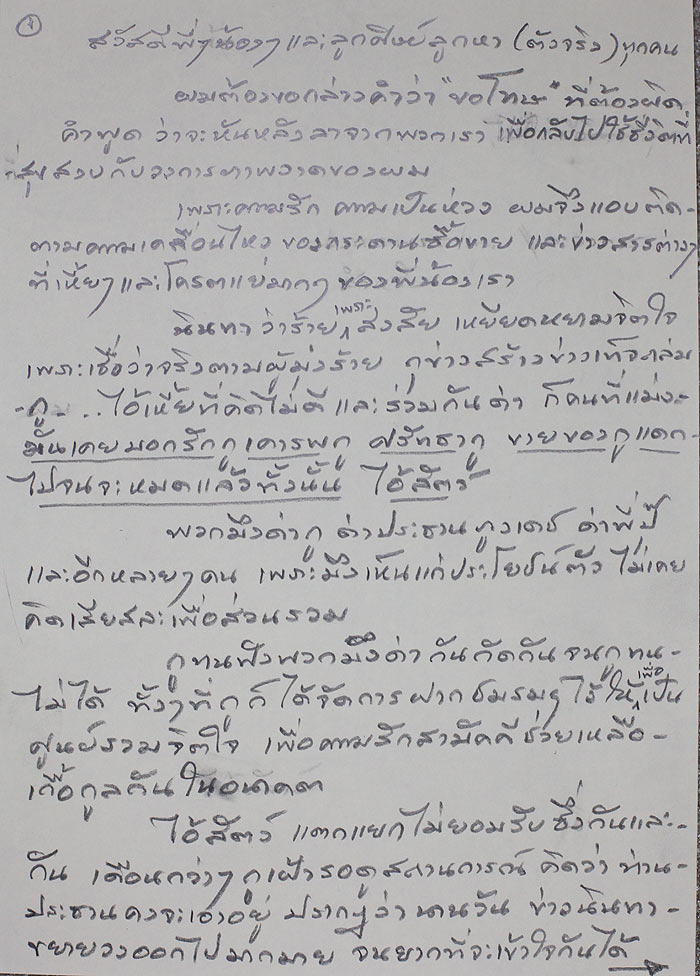 1
สวัสดีพี่ๆน้องๆและลูกศิษย์ลูกหา (ตัวจริง) ทุกคน
ผมต้องขอกล่าวคำว่า "ขอโทษ" ที่ต้องผิด
คำพูด ว่าจะหันหลังลาจากพวกเรา เพื่อกลับไปใช้ชีวิตที่
สุขสงบกับวงการ
ของผม
เพราะความรัก ความเป็นห่วง ผมจึงแอบติด-
ตามความเคลื่อนไหว ของกระดานซื้อขาย และข่าวสารต่างๆ
ที่เหี้ยๆและโคตรแย่มากๆ ของพี่น้องเรา
นินทา ว่าร้าย เพราะ สงสัย เหยียดหยามจิตใจ
เพราะเชื่อว่าจริงตามผู้มุ่งร้าย กุข่าวสร้างข่าวเท็จถล่ม
-กู- .. ไอ้เหี้ยที่คิดไม่ดี และร่วมกันด่า ก็คนที่แม่ง-
มันเคยบอกรักกูเคารพกู ศรัทธากู ขายของกูแดก-
ไปจนจะหมดแล้วทั้งนั้น ไอ้สัตว์
พวกมึงด่ากู ด่าประธาน
ด่าพี่ปุ๊
และอีกหลายๆคน เพราะมึงเห็นแก่ประโยชน์ตัว ไม่เคย
คิดเสียสละเพื่อส่วนรวม
กูทนฟังพวกมึงด่ากันกัดกันจนกูทน-
ไม่ได้ ทั้งๆที่กูก็ได้จัดการฝากชมรมๆไว้ ให้ เพื่อ เป็น
ศูนย์รวมจิตใจ เพื่อความรักสามัคคีช่วยเหลือ-
เกื้อกูลกันในอนาคต
ไอ้สัตว์ แตกแยกไม่ยอมรับซึ่งกันและ-
กัน เดือนกว่าๆ กูเฝ้ารอดูสถานการณ์ คิดว่า ท่าน-
ประธานคงจะเอาอยู่ ปรากฏว่า นานวัน ข่าวนินทา-
ขยายวงออกไปมากมาย จนยากที่จะเข้าใจกันได้